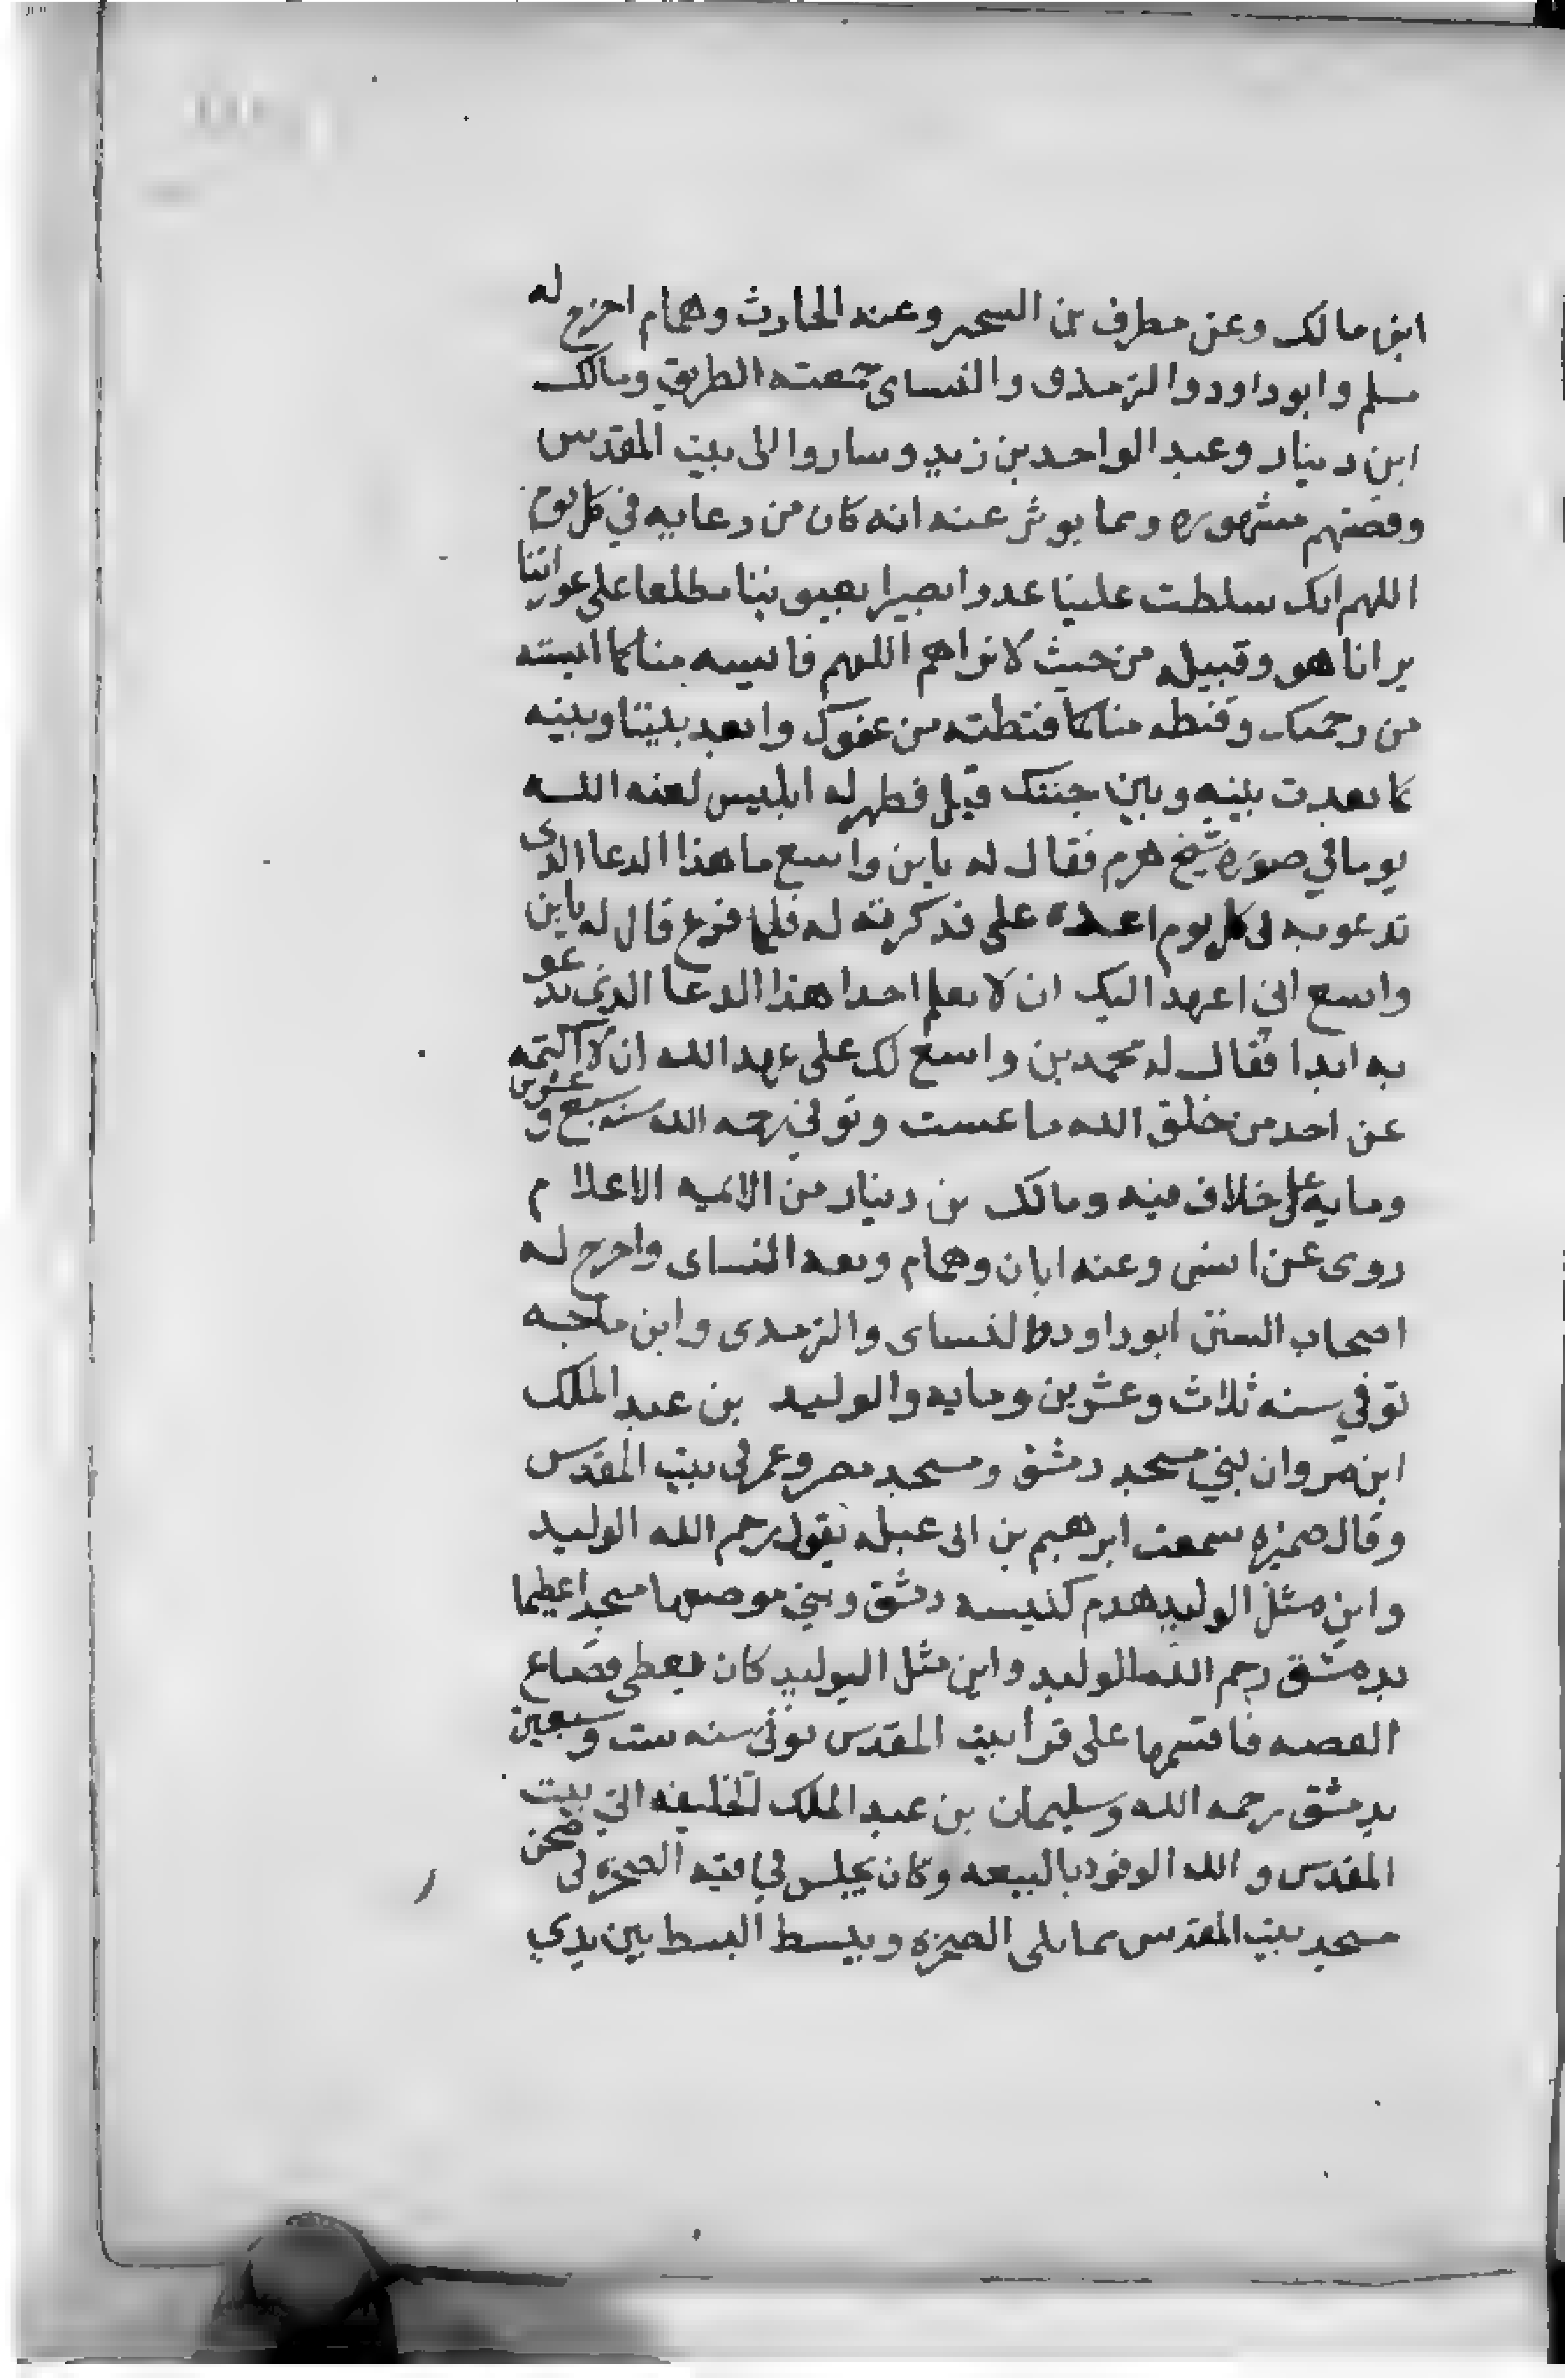 ابن مالك وعن مطرف بن السحير وعنه الحارث وهمام اخرج له
مسلم وابو داود والترمذى والنساى جمعته الطريق ومالك
ابن دينار وعبد الواحد بن زيد وساروا الى بيت المقدس
وقصتهم مشهوره ومما يوثر عنه انه كان من دعايه في كل يوم
اللهم انك سلطت علينا عدوا بصيرا بعيوبنا مطلعا على عوراتنا
يرانا هو وقبيله من حيث لا نراهم اللهم فايسه منا كما ايسته
من رحمتك وقنطه منا كما قنطته من عفوك وابعد بيننا وبينه
كما بعدت بينه وبين جنتك قيل فظهر له ابليس لعنه الله
يوما في صوره شيخ هرم فقال له يا بن واسع ما هذا الدعا الدى
تدعو به فى كل يوم اعده على فذكرته له فلما فرغ قال له يابن
واسع اني اعهد اليك ان لا تعلم احدا هذا الدعا الذى تدعو
به ابدا فقال له محمد بن واسع لك على عهد الله ان لا اكتمه
عن احد من خلق الله ما عست وتوفي رحمه الله سنه سبع وعشرين
ومايه على خلاف فيه ومالك بن دينار من الايمه الاعلام
روى عن انس وعنه ابان وهمام وثقه النساى واخرج له
اصحاب السنن ابو داود والنساى والترمدى وابن ماجه
توفي سنه ثلاث وعشرين ومايه والوليد بن عبد الملك
ابن مروان بني مسجد دمشق ومسجد مصر وعمر فى بيت المقدس
وقال ضمره سمعت ابرهيم بن ابى عبله يقول رحم الله الوليد
واين مثل الوليد هدم كنيسه دمشق وبني موضعها مسجدا عظيما
بدمشق رحم الله الوليد واين مثل الوليد كان يعطى قصاع
الفضه فاقسمها على قرا بيت المقدس توفى سنه ست وتسعين
بدمشق رحمه الله وسليمان بن عبد الملك الخليفه اتي بيت
المقدس واتته الوفود بالبيعه وكان يجلس في قبه الصخره فى صحن
مسجد بيت المقدس مما يلى الصخره ويبسط البسط بين يدي